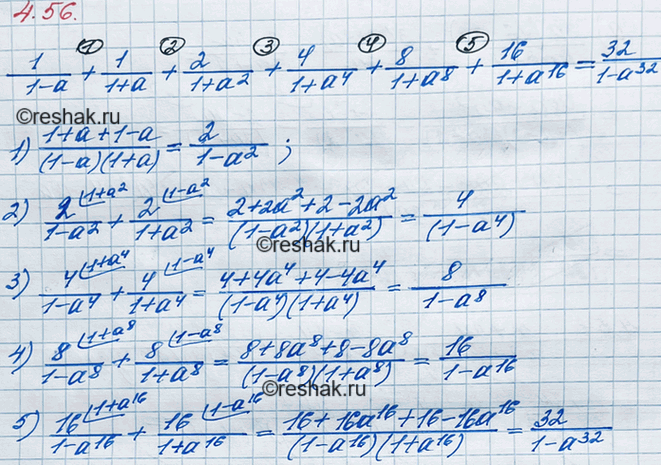 4.56.
① ② ③ ④ ⑤
1/(1-a) + 1/(1+a) + 2/(1+a²) + 4/(1+a⁴) + 8/(1+a⁸) + 16/(1+a¹⁶) = 32/(1-a³²)
©reshak.ru ©reshak.ru
1) (1+a+1-a)/((1-a)(1+a)) = 2/(1-a²) ;
2) 2⁽¹⁺ᵃ²/(1-a²) + 2⁽¹⁻ᵃ²/(1+a²) = (2+2a²+2-2a²)/((1-a²)(1+a²)) = 4/(1-a⁴)
©reshak.ru
3) 4⁽¹⁺ᵃ⁴/(1-a⁴) + 4⁽¹⁻ᵃ⁴/(1+a⁴) = (4+4a⁴+4-4a⁴)/((1-a⁴)(1+a⁴)) = 8/(1-a⁸)
4) 8⁽¹⁺ᵃ⁸/(1-a⁸) + 8⁽¹⁻ᵃ⁸/(1+a⁸) = (8+8a⁸+8-8a⁸)/((1-a⁸)(1+a⁸)) = 16/(1-a¹⁶)
©reshak.ru ©reshak.ru
5) 16⁽¹⁺ᵃ¹⁶/(1-a¹⁶) + 16⁽¹⁻ᵃ¹⁶/(1+a¹⁶) = (16+16a¹⁶+16-16a¹⁶)/((1-a¹⁶)(1+a¹⁶)) = 32/(1-a³²)